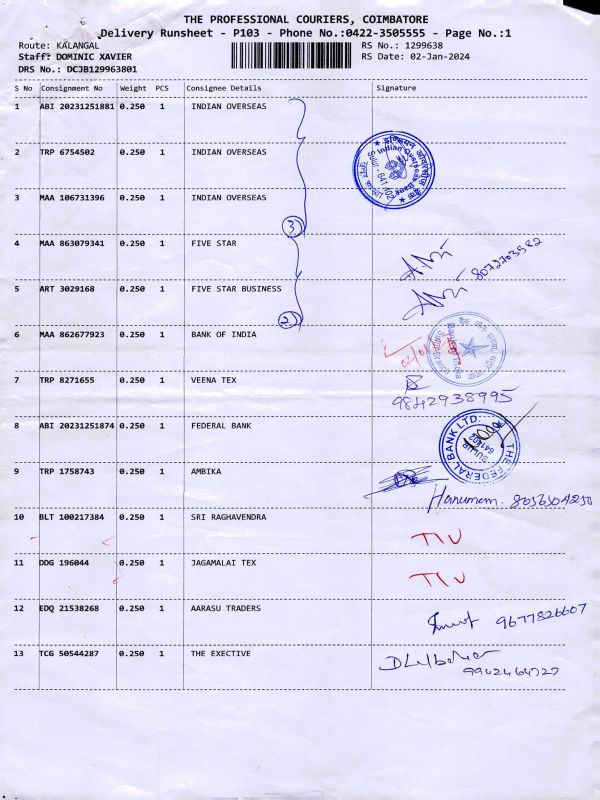 THE PROFESSIONAL COURIERS, COIMBATORE
Delivery Runsheet - P103 - Phone No.:0422-3505555 - Page No.:1
Route: KALANGAL RS No.: 1299638
Staff: DOMINIC XAVIER RS Date: 02-Jan-2024
DRS No.: DCJB129963801
S No Consignment No Weight PCS Consignee Details Signature
1 ABI 20231251881 0.250 1 INDIAN OVERSEAS
2 TRP 6754502 0.250 1 INDIAN OVERSEAS
इण्डियन ओवरसीज़ बैंक
Indian Overseas Bank
Sulur - 641 402
3 MAA 106731396 0.250 1 INDIAN OVERSEAS
3
4 MAA 863079341 0.250 1 FIVE STAR
8072703582
5 ART 3029168 0.250 1 FIVE STAR BUSINESS
2
6 MAA 862677923 0.250 1 BANK OF INDIA
02/01
7 TRP 8271655 0.250 1 VEENA TEX
9842938995
8 ABI 20231251874 0.250 1 FEDERAL BANK
THE FEDERAL BANK LTD.
SULUR
641402
9 TRP 1758743 0.250 1 AMBIKA
Hanumam. 8056504250
10 BLT 100217384 0.250 1 SRI RAGHAVENDRA
TIU
11 DDG 196044 0.250 1 JAGAMALAI TEX
TIU
12 EDQ 21538268 0.250 1 AARASU TRADERS
9677826607
13 TCG 50544287 0.250 1 THE EXECTIVE
9942464727